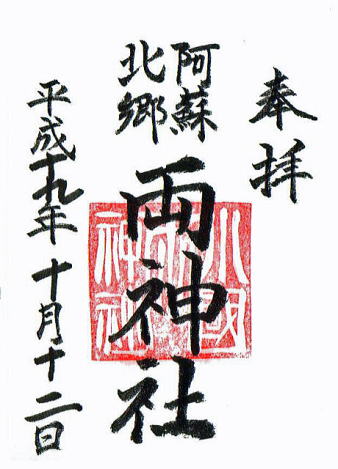 奉拝
阿蘇
北郷
両神社
平成十九年 十月十二日
小國
神社